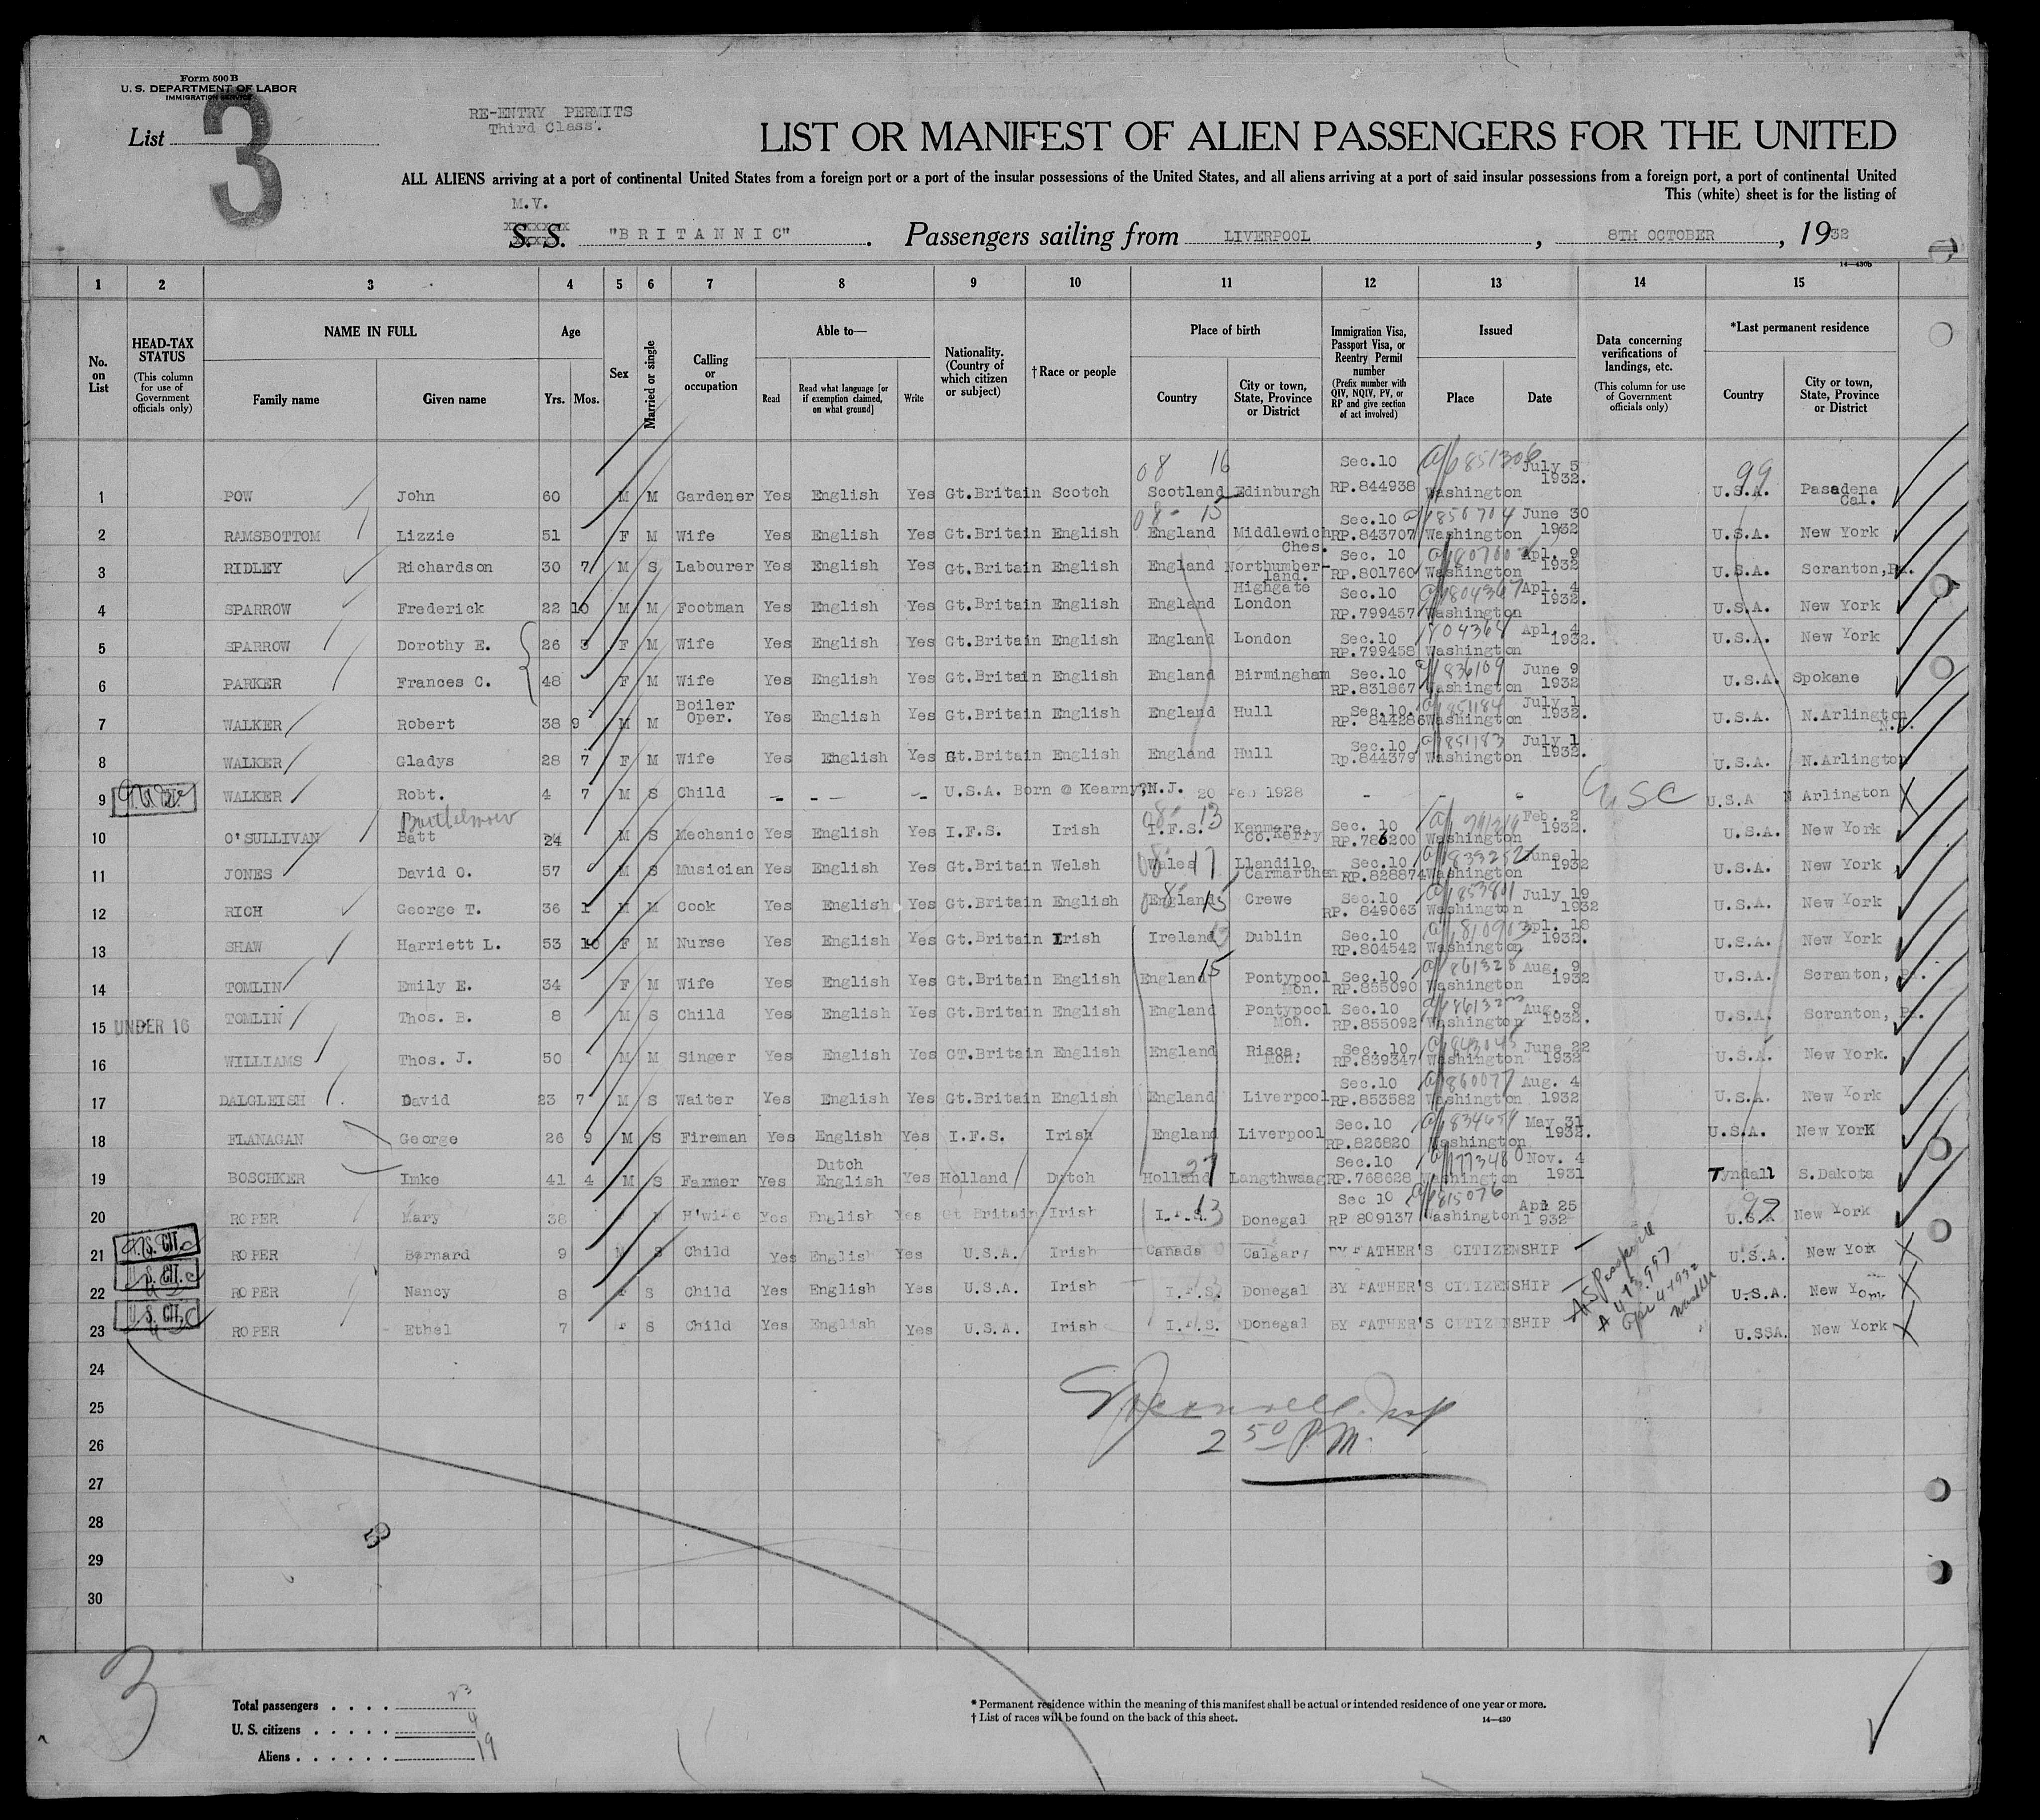 Form 500 B
U. S. DEPARTMENT OF LABOR
IMMIGRATION SERVICE
List
3
RE-ENTRY PERMITS
Third Class.
LIST OR MANIFEST OF ALIEN PASSENGERS FOR THE UNITED
ALL ALIENS arriving at a port of continental United States from a foreign port or a port of the insular possessions of the United States, and all aliens arriving at a port of said insular possessions from a foreign port, a port of continental United
This (white) sheet is for the listing of
M.V.
S. S. "BRITANNIC". Passengers sailing from LIVERPOOL, 8TH OCTOBER, 1932
14—430b
1 2 3 4 5 6 7 8 9 10 11 12 13 14 15
No. on List
HEAD-TAX STATUS (This column for use of Government officials only)
NAME IN FULL
Family name
Given name
Age
Yrs. Mos.
Sex
Married or single
Calling or occupation
Able to—
Read
Read what language [or if exemption claimed, on what ground]
Write
Nationality. (Country of which citizen or subject)
†Race or people
Place of birth
Country
City or town, State, Province or District
Immigration Visa, Passport Visa, or Reentry Permit number (Prefix number with QIV, NQIV, PV, or RP and give section of act involved)
Issued
Place
Date
Data concerning verifications of landings, etc. (This column for use of Government officials only)
*Last permanent residence
Country
City or town, State, Province or District
1 POW John 60 M M Gardener Yes English Yes Gt.Britain Scotch 08 16 Scotland Edinburgh Sec.10 RP.844938 851306 Washington July 5 1932. 99 U.S.A. Pasadena Cal.
2 RAMSBOTTOM Lizzie 51 F M Wife Yes English Yes Gt.Britain English 08- 15 England Middlewich Ches. Sec.10 RP.843707 850704 Washington June 30 1932 U.S.A. New York
3 RIDLEY Richardson 30 7 M S Labourer Yes English Yes Gt.Britain English England Northumberland. Sec. 10 RP.801760 Washington Apl. 9 1932 U.S.A. Scranton,Pa.
4 SPARROW Frederick 22 10 M M Footman Yes English Yes Gt.Britain English England Highgate London Sec.10 RP.799457 804367 Washington Apl. 4 1932. U.S.A. New York
5 SPARROW Dorothy E. 26 3 F M Wife Yes English Yes Gt.Britain English England London Sec.10 RP.799458 804368 Washington Apl. 4 1932. U.S.A. New York
6 PARKER Frances C. 48 F M Wife Yes English Yes Gt.Britain English England Birmingham Sec.10 RP.831867 836109 Washington June 9 1932 U.S.A. Spokane
7 WALKER Robert 38 9 M M Boiler Oper. Yes English Yes Gt.Britain English England Hull Sec.10. RP. 844286 851184 Washington July 1 1932. U.S.A. N.Arlington N.J.
8 WALKER Gladys 28 7 F M Wife Yes English Yes Gt.Britain English England Hull Sec.10 Rp.844379 851183 Washington July 1 1932. U.S.A. N.Arlington
9 WALKER Robt. 4 7 M S Child - - - - U.S.A. Born @ Kearny, N.J. 20 Feb 1928 - - - USC U.S.A N Arlington
10 O'SULLIVAN Bartholmew Batt 24 M S Mechanic Yes English Yes I.F.S. Irish 08- 13 I.F.S. Kenmare, Co.Kerry Sec. 10 RP.786200 Washington Feb. 2 1932. U.S.A. New York
11 JONES David O. 57 M S Musician Yes English Yes Gt.Britain Welsh 08- 17 Wales Llandilo Carmarthen Sec.10 RP.828874 833252 Washington June 1 1932 U.S.A. New York
12 RICH George T. 36 1 M M Cook Yes English Yes Gt.Britain English 08- 15 England Crewe Sec.10 RP. 849063 853801 Washington July 19 1932 U.S.A. New York
13 SHAW Harriett L. 53 10 F M Nurse Yes English Yes Gt.Britain Irish Ireland 13 Dublin Sec.10 RP.804542 Washington Apl. 18 1932. U.S.A. New York
14 TOMLIN Emily E. 34 F M Wife Yes English Yes Gt.Britain English England 15 Pontypool Mon. Sec.10 RP.855090 861325 Washington Aug. 9 1932 U.S.A. Scranton, Pa.
15 UNDER 16 TOMLIN Thos. B. 8 M S Child Yes English Yes Gt.Britain English England Pontypool Mon. Sec.10 RP.855092 Washington Aug. 9 1932. U.S.A. Scranton, Pa.
16 WILLIAMS Thos. J. 50 M M Singer Yes English Yes GT.Britain English England Risca, Mon. Sec. 10 RP.839347 843045 Washington June 22 1932 U.S.A. New York.
17 DALGLEISH David 23 7 M S Waiter Yes English Yes Gt.Britain English England Liverpool Sec.10 RP.853582 860077 Washington Aug. 4 1932 U.S.A. New York
18 FLANAGAN George 26 9 M S Fireman Yes English Yes I.F.S. Irish England Liverpool Sec.10 RP.826820 834654 Washington May 31 1932. U.S.A. New York
19 BOSCHKER Imke 41 4 M S Farmer Yes Dutch English Yes Holland Dutch Holland 27 Langthwaag Sec.10 RP.768628 773480 Washington Nov. 4 1931 Tyndall S.Dakota
20 ROPER Mary 38 F M H'wife Yes English Yes Gt Britain Irish I.F.S. 13 Donegal Sec 10 RP 809137 815076 Washington Apl 25 1932 99 U.S.A New York
21 U.S. CIT. ROPER Bernard 9 M S Child Yes English Yes U.S.A. Irish Canada Calgary BY FATHER'S CITIZENSHIP U.S.A. New York
22 U.S. CIT. ROPER Nancy 8 F S Child Yes English Yes U.S.A. Irish I.F.S. Donegal BY FATHER'S CITIZENSHIP U.S.A. New York
23 U.S. CIT. ROPER Ethel 7 F S Child Yes English Yes U.S.A. Irish I.F.S. Donegal BY FATHER'S CITIZENSHIP USSA. New York
U.S Passport
24
25
26
2 50 P.M.
27
28
29
30
3
Total passengers 23
U. S. citizens 4
Aliens 19
* Permanent residence within the meaning of this manifest shall be actual or intended residence of one year or more.
† List of races will be found on the back of this sheet.
14—430